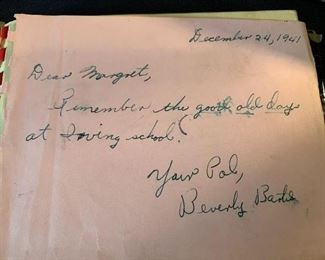 December 24, 1941
Dear Margret,
Remember the good old days
at Irving school!
Your Pal,
Beverly